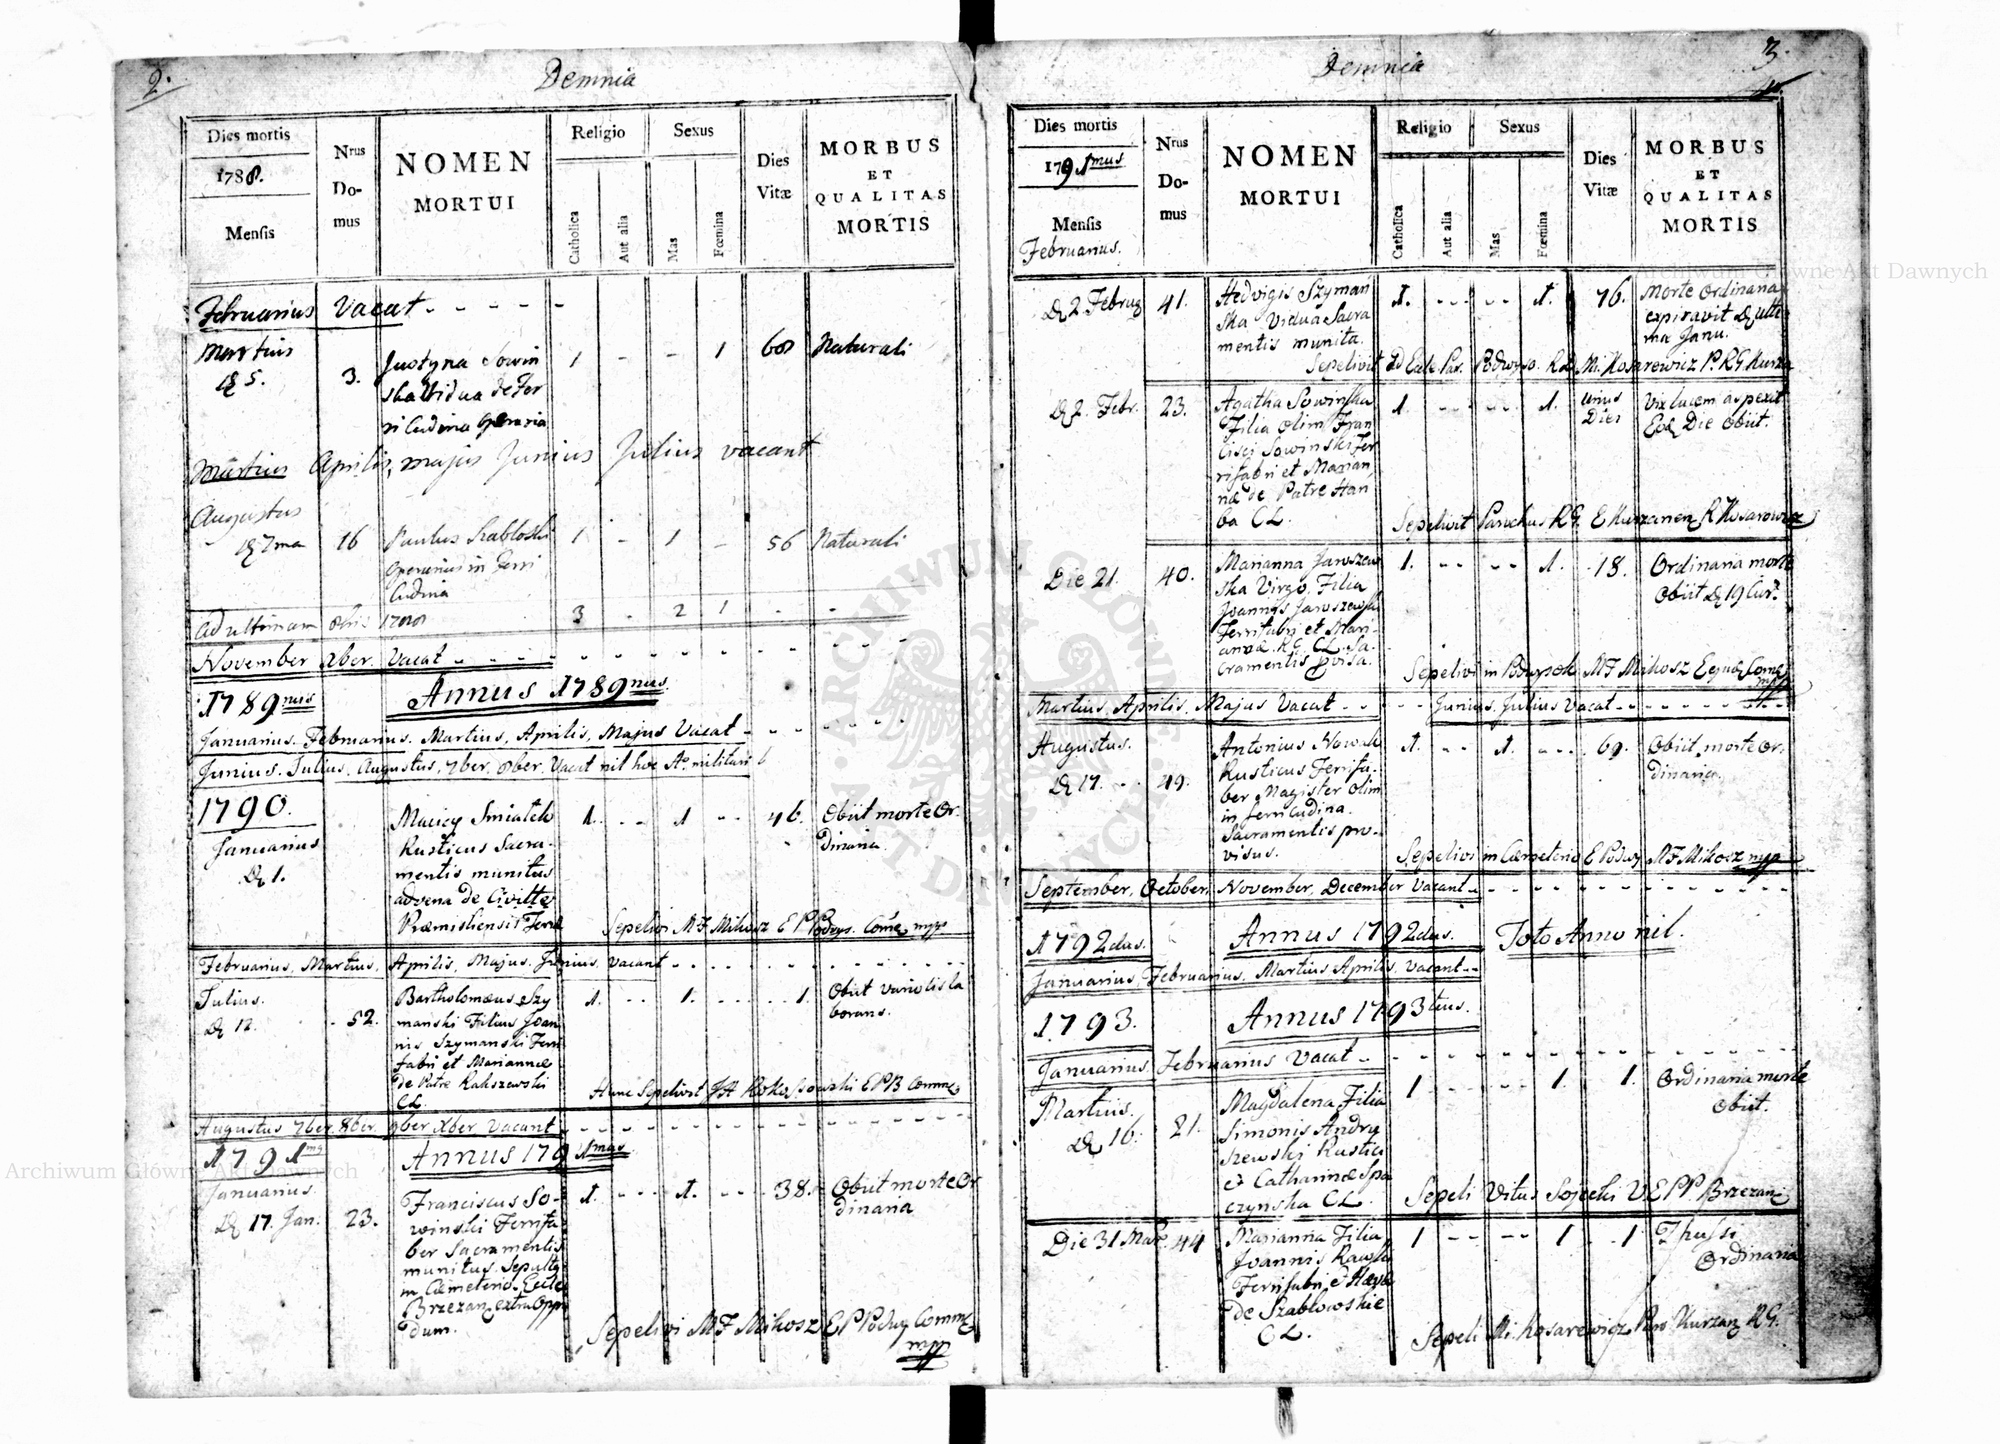 2.
Demnia
Dies mortis
1788.
Mensis
Nrus
Do-
mus
NOMEN
MORTUI
Religio
Catholica
Aut alia
Sexus
Mas
Fœmina
Dies
Vitæ
MORBUS
ET
QUALITAS
MORTIS
Februarius vacat - - - - -
Martius
5.
3.
Justyna Sowin
ska Vidua de Fer
ri Cudina
1 - - 1
60
Naturali
Martius Aprilis, majus Junius Julius vacant
Augustus
7ma
16
Paulus Szabloski
operarius in Ferri
Cudina
1 - 1 -
56
Naturali
Ad ultimam
3 - 2 1 - -
November Xber. Vacat - - - -
1789nus
Annus 1789nus.
Januarius. Februarius. Martius, Aprilis, Majus Vacat -
Junius. Julius. Augustus, 7ber. 8ber. Vacat nil hoc Ao militari
1790.
Januarius
1.
Maciey Smiatek
Rusticus Sacra-
mentis munitus
advena de
Præmisliensis
1. - - 1 - -
46.
Obiit morte Or.
dinaria
Sepelivi MF Mikosz E P Podwys. Come mpp
Februarius, Martius, Aprilis, Majus. Junius, vacant - - -
Julius.
12.
52.
Bartholomæus Szy
manski Filius Joan
nis Szymanski Ferri
fabri et Mariannæ
de Patre Rakszewski
CL.
1. - - 1. - - - 1.
Obiit variolis la
borans.
Hunc Sepelivit
Augustus 7ber. 8ber. 9ber Xber Vacant - - -
1791mus
Annus 1791mus
Januarius.
17. Jan.
23.
Franciscus So-
winski Ferrifa
ber Sacramentis
munitus. Sepult9
in Cæmeterio Eccle
Brzezan extra Oppi
dum.
1. - - - 1. - - -
38.
Obiit morte Or
dinaria
Sepelivi MF Mikosz E P Podwy Comme
mpp
3.
Demnia
Dies mortis
1791mus
Mensis
Februarius.
Nrus
Do-
mus
NOMEN
MORTUI
Religio
Catholica
Aut alia
Sexus
Mas
Fœmina
Dies
Vitæ
MORBUS
ET
QUALITAS
MORTIS
2 Februa
41.
Hedvigis Szyman
ska Vidua Sacra
mentis munita.
1. - - - - 1.
76.
Morte Ordinaria
expiravit ulti
ma Janu.
Sepelivit Ecle. Par. Podwyso. Mi. Kosarewicz P. RG Kurza
2. Febr.
23.
Agatha Sowinska
Filia olim Fran
cisci Sowinski Fer
rifabri et Marian
næ de Patre Han
ba CL.
1. - - - - 1.
unius
Dies
Vix lucem aspexit
Die Obiit.
Sepelivit Parochus RG. E Kurzanen R Kosarowicz
Die 21.
40.
Marianna Jaroszew
ska Virgo, Filia
Joannis Jaroszewski
Ferrifabri et Mari-
annæ. RG. CL. Sa-
cramentis pvisa.
1. - - - - 1.
18.
Ordinaria morte
Obiit 19 Cur.
Sepelivi in Podwysok MF Mikosz Come
mpp
Martius, Aprilis, Majus Vacat - - - - - Junius, Julius Vacat - - -
Augustus.
17. - -
49.
Antonius Nowak
Rusticus Ferrifa-
ber Magister olim
in ferri Cudina.
Sacramentis pro-
visus.
1. - - 1. - - -
69.
Obiit morte Or.
dinaria
Sepelivi in Cæmeterio E Podwy MF Mikosz mpp
September, October, November, December Vacant - - -
1792dus.
Annus 1792dus.
Toto Anno nil.
Januarius, Februarius, Martius Aprilis, Vacant - -
1793.
Annus 1793tius.
Januarius Februarius Vacat - - -
Martius.
16.
21.
Magdalena Filia
Simonis Andry
szewski Rustici
et Catharinæ Spa
czynska CL.
1 - - - - 1.
1.
Ordinaria morte
Obiit.
Sepeli Vitus Sojecki V E P P Brzezan
Die 31 Mar.
44
Marianna Filia
Joannis Rawski
Ferrifabri, et
de Szablowskie
CL.
1 - - - - 1 - 1
Thussi
Ordinaria
Sepeli Mi. Kosarewicz Paro Kurzan RG.
Archiwum Główne Akt Dawnych
Archiwum Główne Akt Dawnych
ARCHIWUM GŁÓWNE AKT DAWNYCH